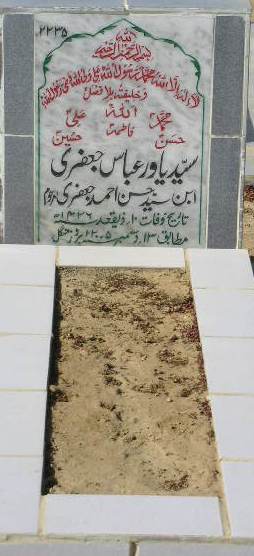 ۲۲۳۵
اللہ
بسم اللہ الرحمن الرحیم
لا الہ الا اللہ محمد رسول اللہ علی ولی اللہ وصی رسول اللہ
و خلیفتہ بلا فصل
محمدؐ اللہ علیؑ
حسنؑ فاطمہؑ حسینؑ
سید یاور عباس جعفری
ابن سید حسن احمد جعفری مرحوم
تاریخ وفات ۱۰ ذیقعدہ ۱۴۲۶ھ
مطابق ۱۳ دسمبر ۲۰۰۵ء بروز منگل